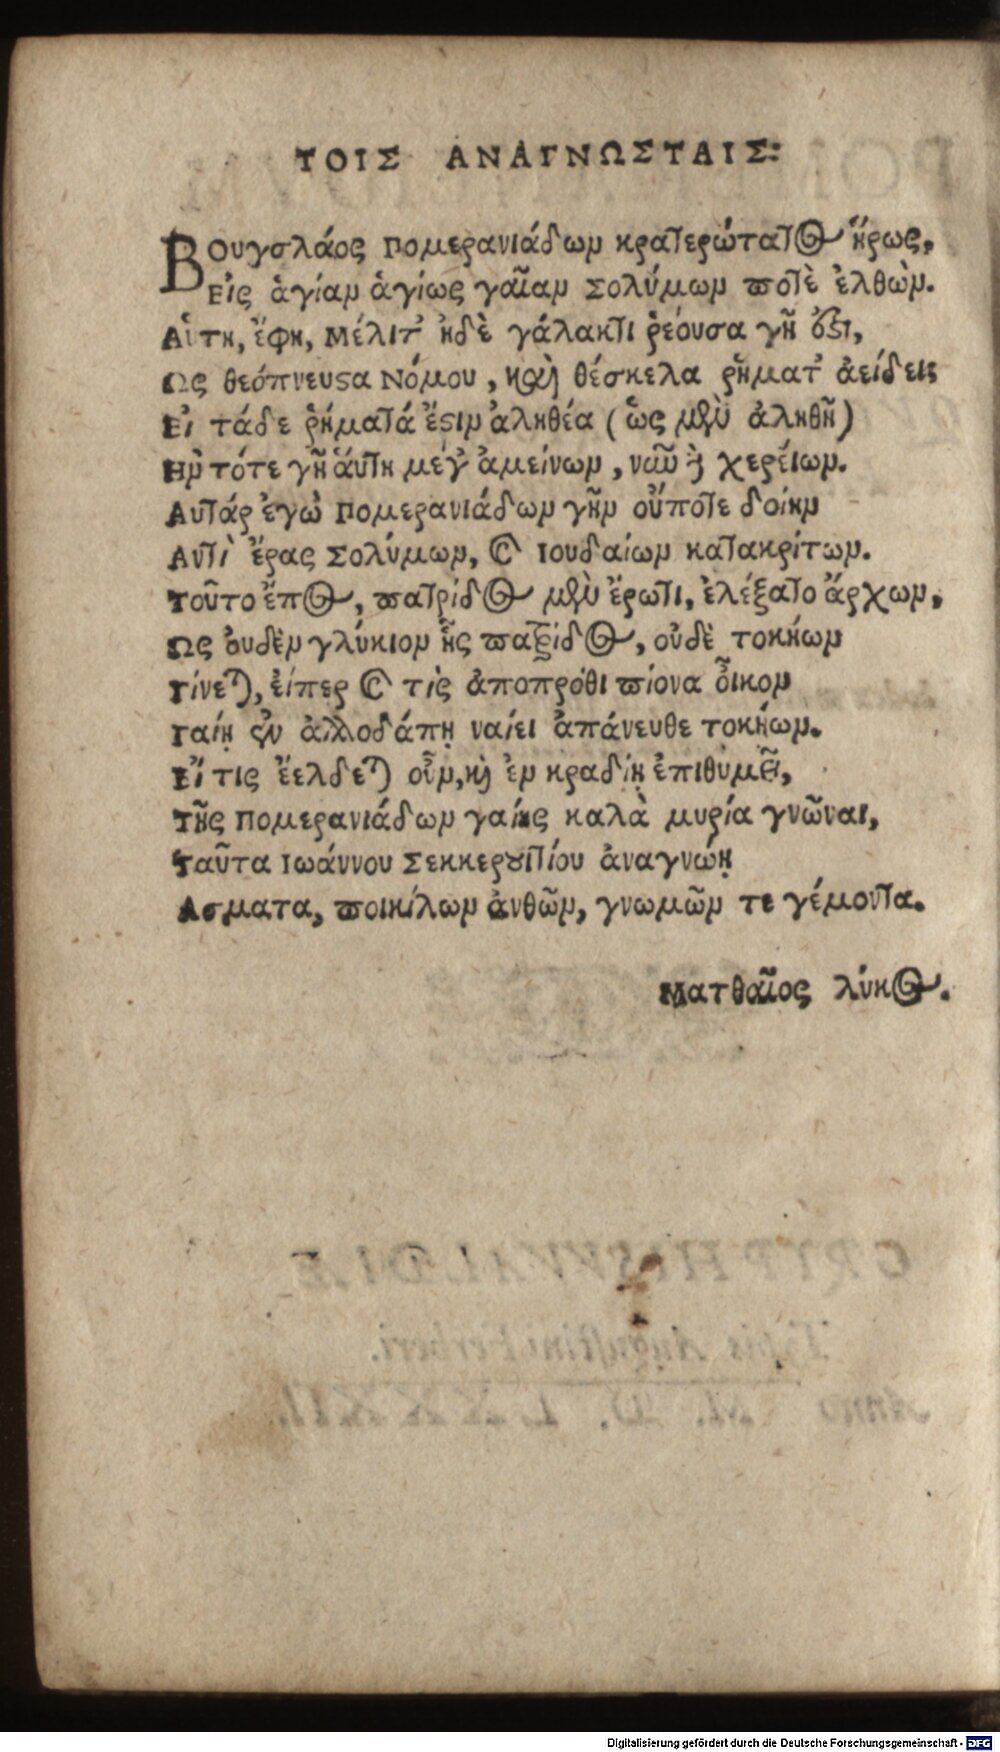 ΤΟΙΣ ΑΝΑΓΝΩΣΤΑΙΣ:
Βουγσλάος πομερανιάδων κρατερώτατος ἥρως,
Εἰς ἁγίαν ἁγίως γαῖαν Σολύμων ποτὲ ἐλθὼν.
Αὕτη, ἔφη, Μέλιτ' ἠδὲ γάλακτι ῥέουσα γῆ ὅζι,
Ως θεόπνευστα Νόμου, καὶ θέσκελα ῥήματ' ἀείδει
Εἰ τάδε ῥήματά ἔστιν ἀληθέα (ὡς μὲν ἀληθῆ)
Ην τότε γῆ ἀύτη μέγ' ἀμείνων, νῦν δὲ χερείων.
Αυτάρ ἐγὼ πομερανιάδων γῆν οὔποτε δοίην
Αντὶ ἔρας Σολύμων, καὶ Ιουδαίων κατακρίτων.
Τοῦτο ἔπος, πατρίδος μὲν ἔρωτι, ἐλέξατο ἄρχων,
Ως ὀυδὲν γλύκιον ἧς πατρίδος, οὐδὲ τοκήων
Γίνεται, ἐίπερ καὶ τὶς ἀποπρόθι πίονα οἶκον
Γαίῃ ἐν ἀλλοδάπῃ ναίει ἀπάνευθε τοκήων.
Εἴ τις ἔελδεται οὖν, καὶ ἐν κραδίῃ ἐπιθύμει,
Τῆς πομερανιάδων γαίης καλὰ μυρία γνῶναι,
Ταῦτα Ιωάννου Σεκκερουιτίου ἀναγνώῃ
Ασματα, ποικίλων ἀνθῶν, γνωμῶν τε γέμοντα.
Ματθαῖος λύκος.
Digitalisierung gefördert durch die Deutsche Forschungsgemeinschaft - DFG